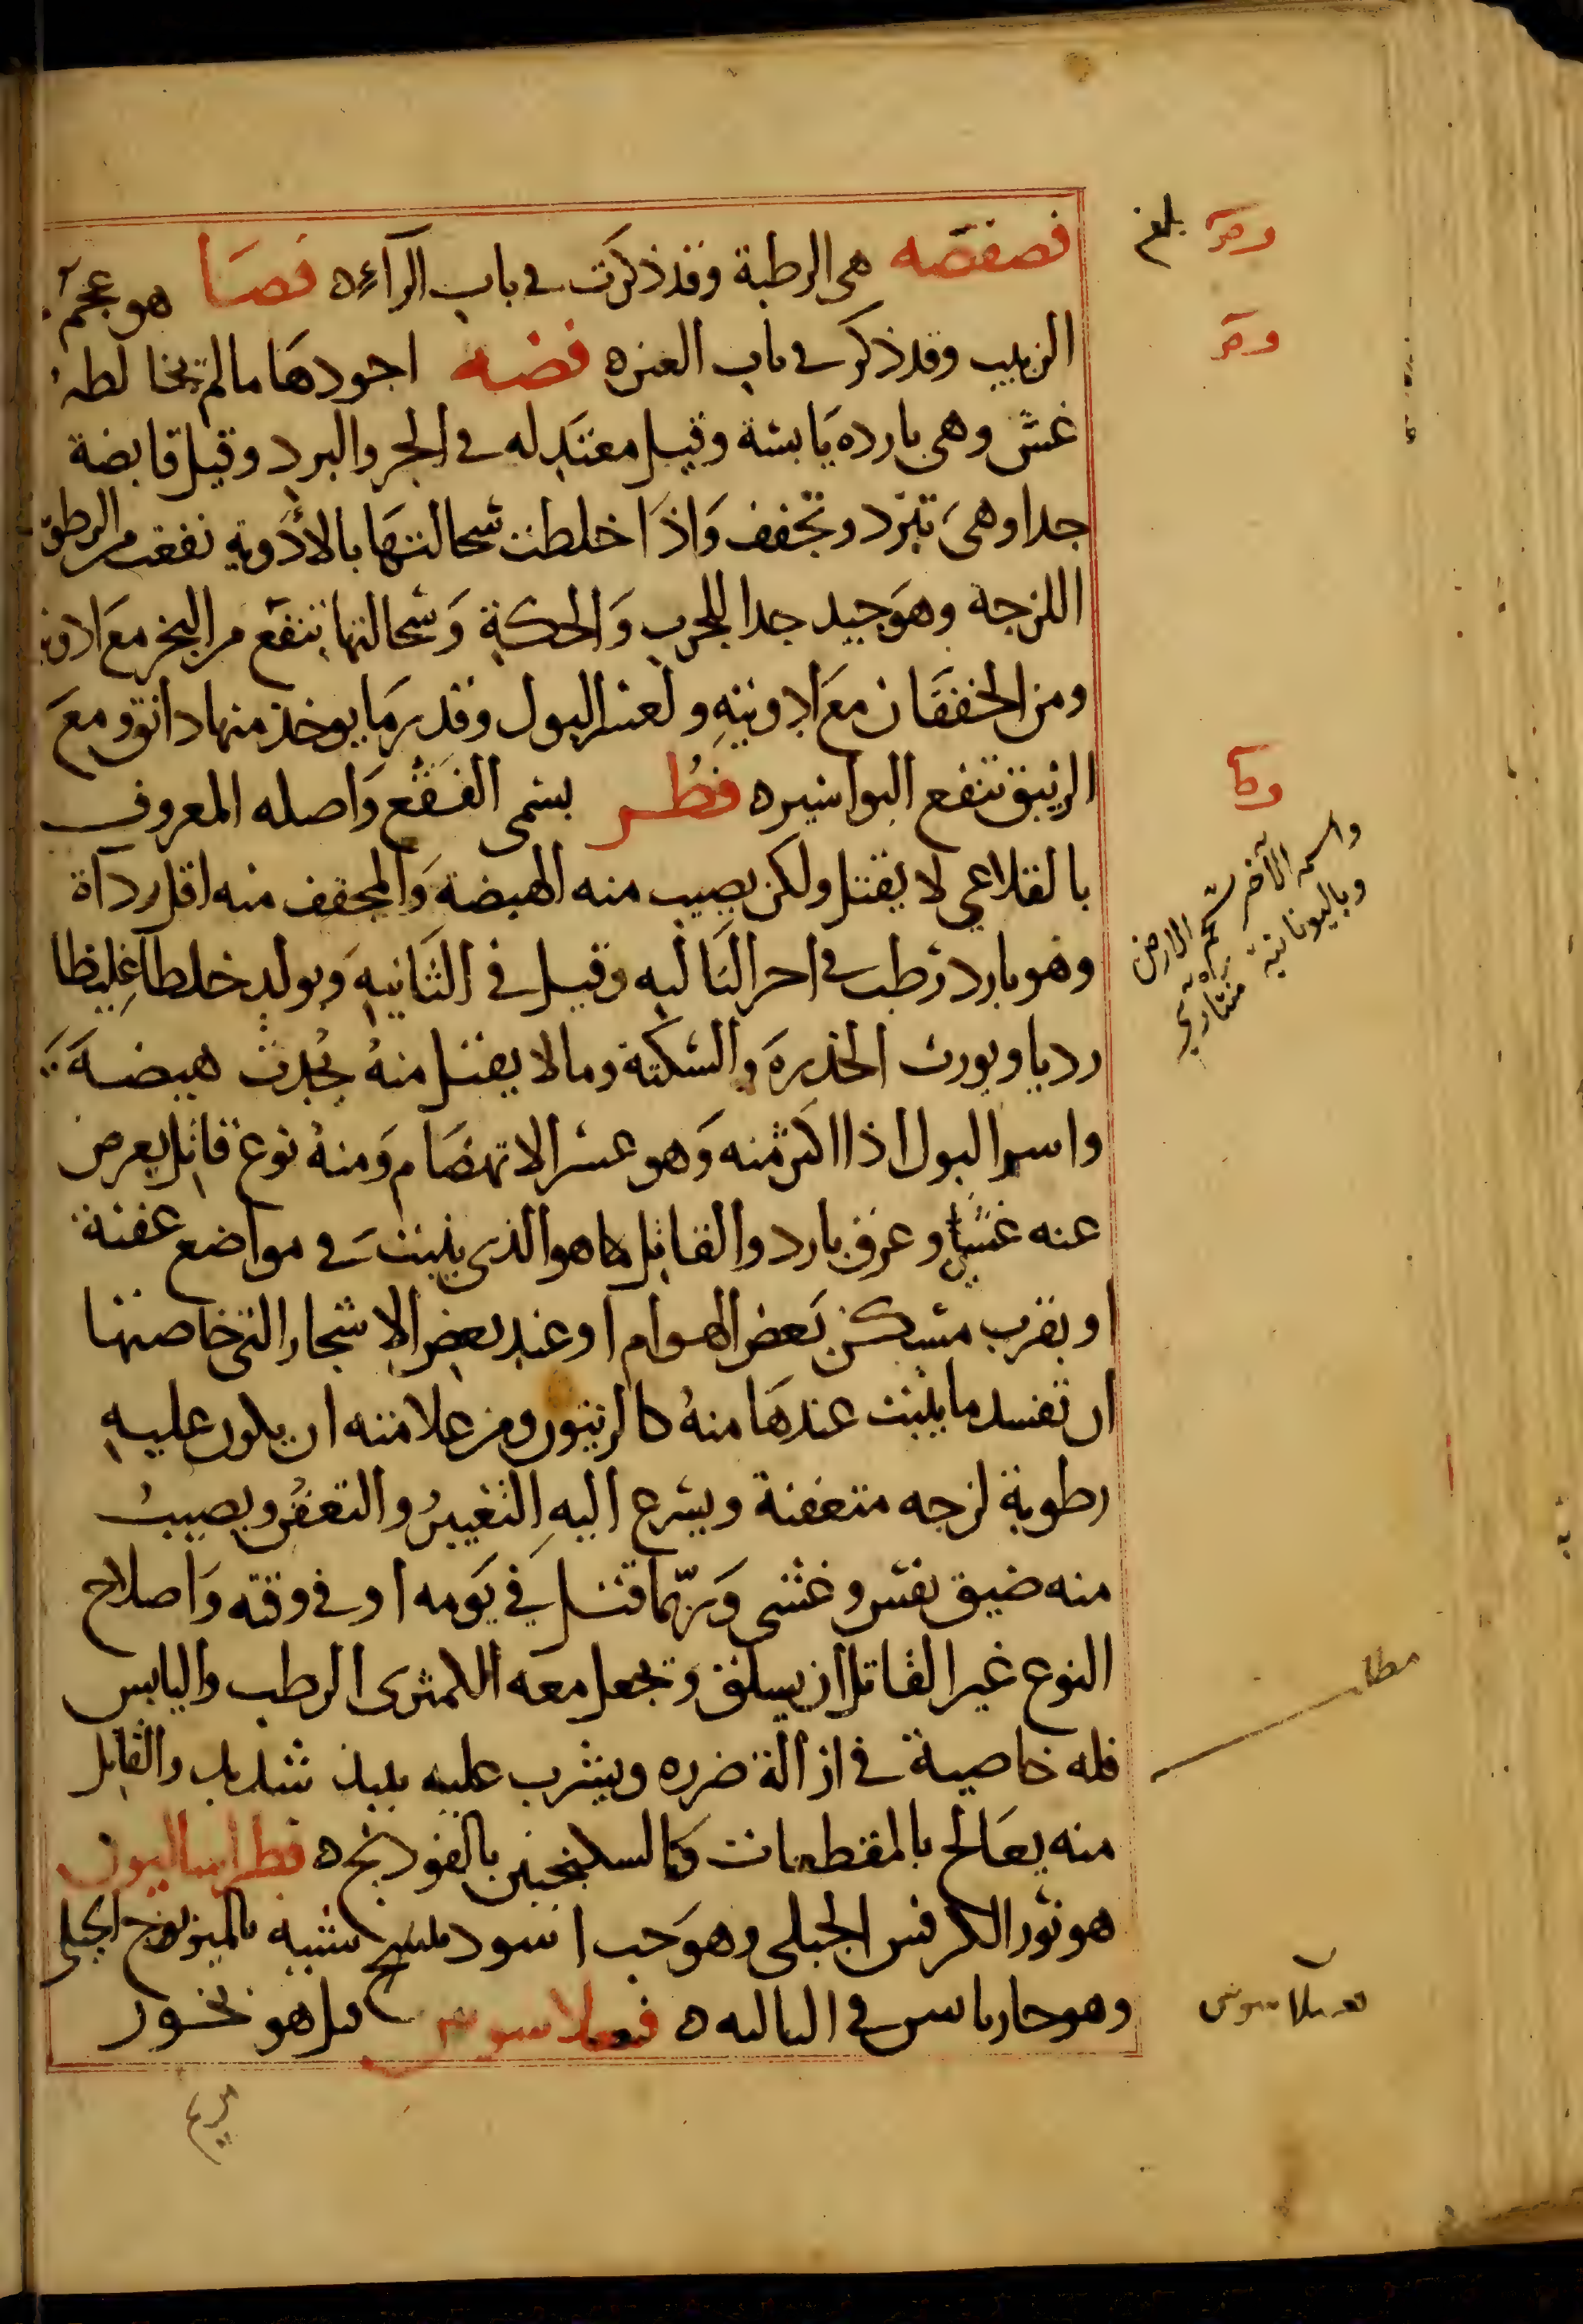 فصفصه هي الرطبة وقد ذكرت في باب الراء ه فصا هو عجم
الزبيب وقد ذكر في باب العين ه فضه اجودها مالم يخالطه
غش وهي بارده يابسة وقيل معتدله في الحر والبرد وقيل قابضة
جدا وهي تبرد وتجفف واذا خلطت سحالتها بالأدوية نفعت من الرطوبة
اللزجة وهو جيد جدا للجرب والحكة وسحالتها تنفع من البخر مع ادويته
ومن الخفقان مع ادويته ولعسر البول وقدر ما يوخذ منها دانق ومع
الزيبق تنفع البواسير ه فطر يسمى الفقع واصله المعروف
بالقلاعي لا يقتل ولكن يصيب منه الهيضة والمجفف منه اقل رداة
وهو بارد رطب في اخر الثالثه وقيل في الثانيه ويولد خلطا غليظا
رديا ويورث الخدر والسكتة وما لا يقتل منه يحدث هيضة
واسر البول اذا اكثر منه وهو عسر الانهضام ومنه نوع قاتل يعرض
عنه غشي وعرق بارد والقاتل ما هو الذي ينبت في مواضع عفنة
او بقرب مسكن بعض الهوام او عند بعض الاشجار التي خاصتها
ان تفسد ما ينبت عندها منه كالزيتون ومن علامته ان يكون عليه
رطوبة لزجه متعفنة ويسرع اليه التغيير والتعفن ويصيب
منه ضيق نفس وغشي وربما قتل في يومه او في وقته واصلاح
النوع غير القاتل ان يسلق وتجعل معه الكمثرى الرطب واليابس
فله خاصية في ازالة ضرره ويشرب عليه نبيذ شديد والقاتل
منه يعالج بالمقطعات وكالسكنجبين بالفودنج ه فطراساليون
هو نور الكرفس الجبلي وهو حب اسود شبيه الجبلي
وهو حار يابس في الثالثه ه قيل هو بخور
مريم
بلغ
واسمه الآخر شحم الارض
وباليونانية
مطلب